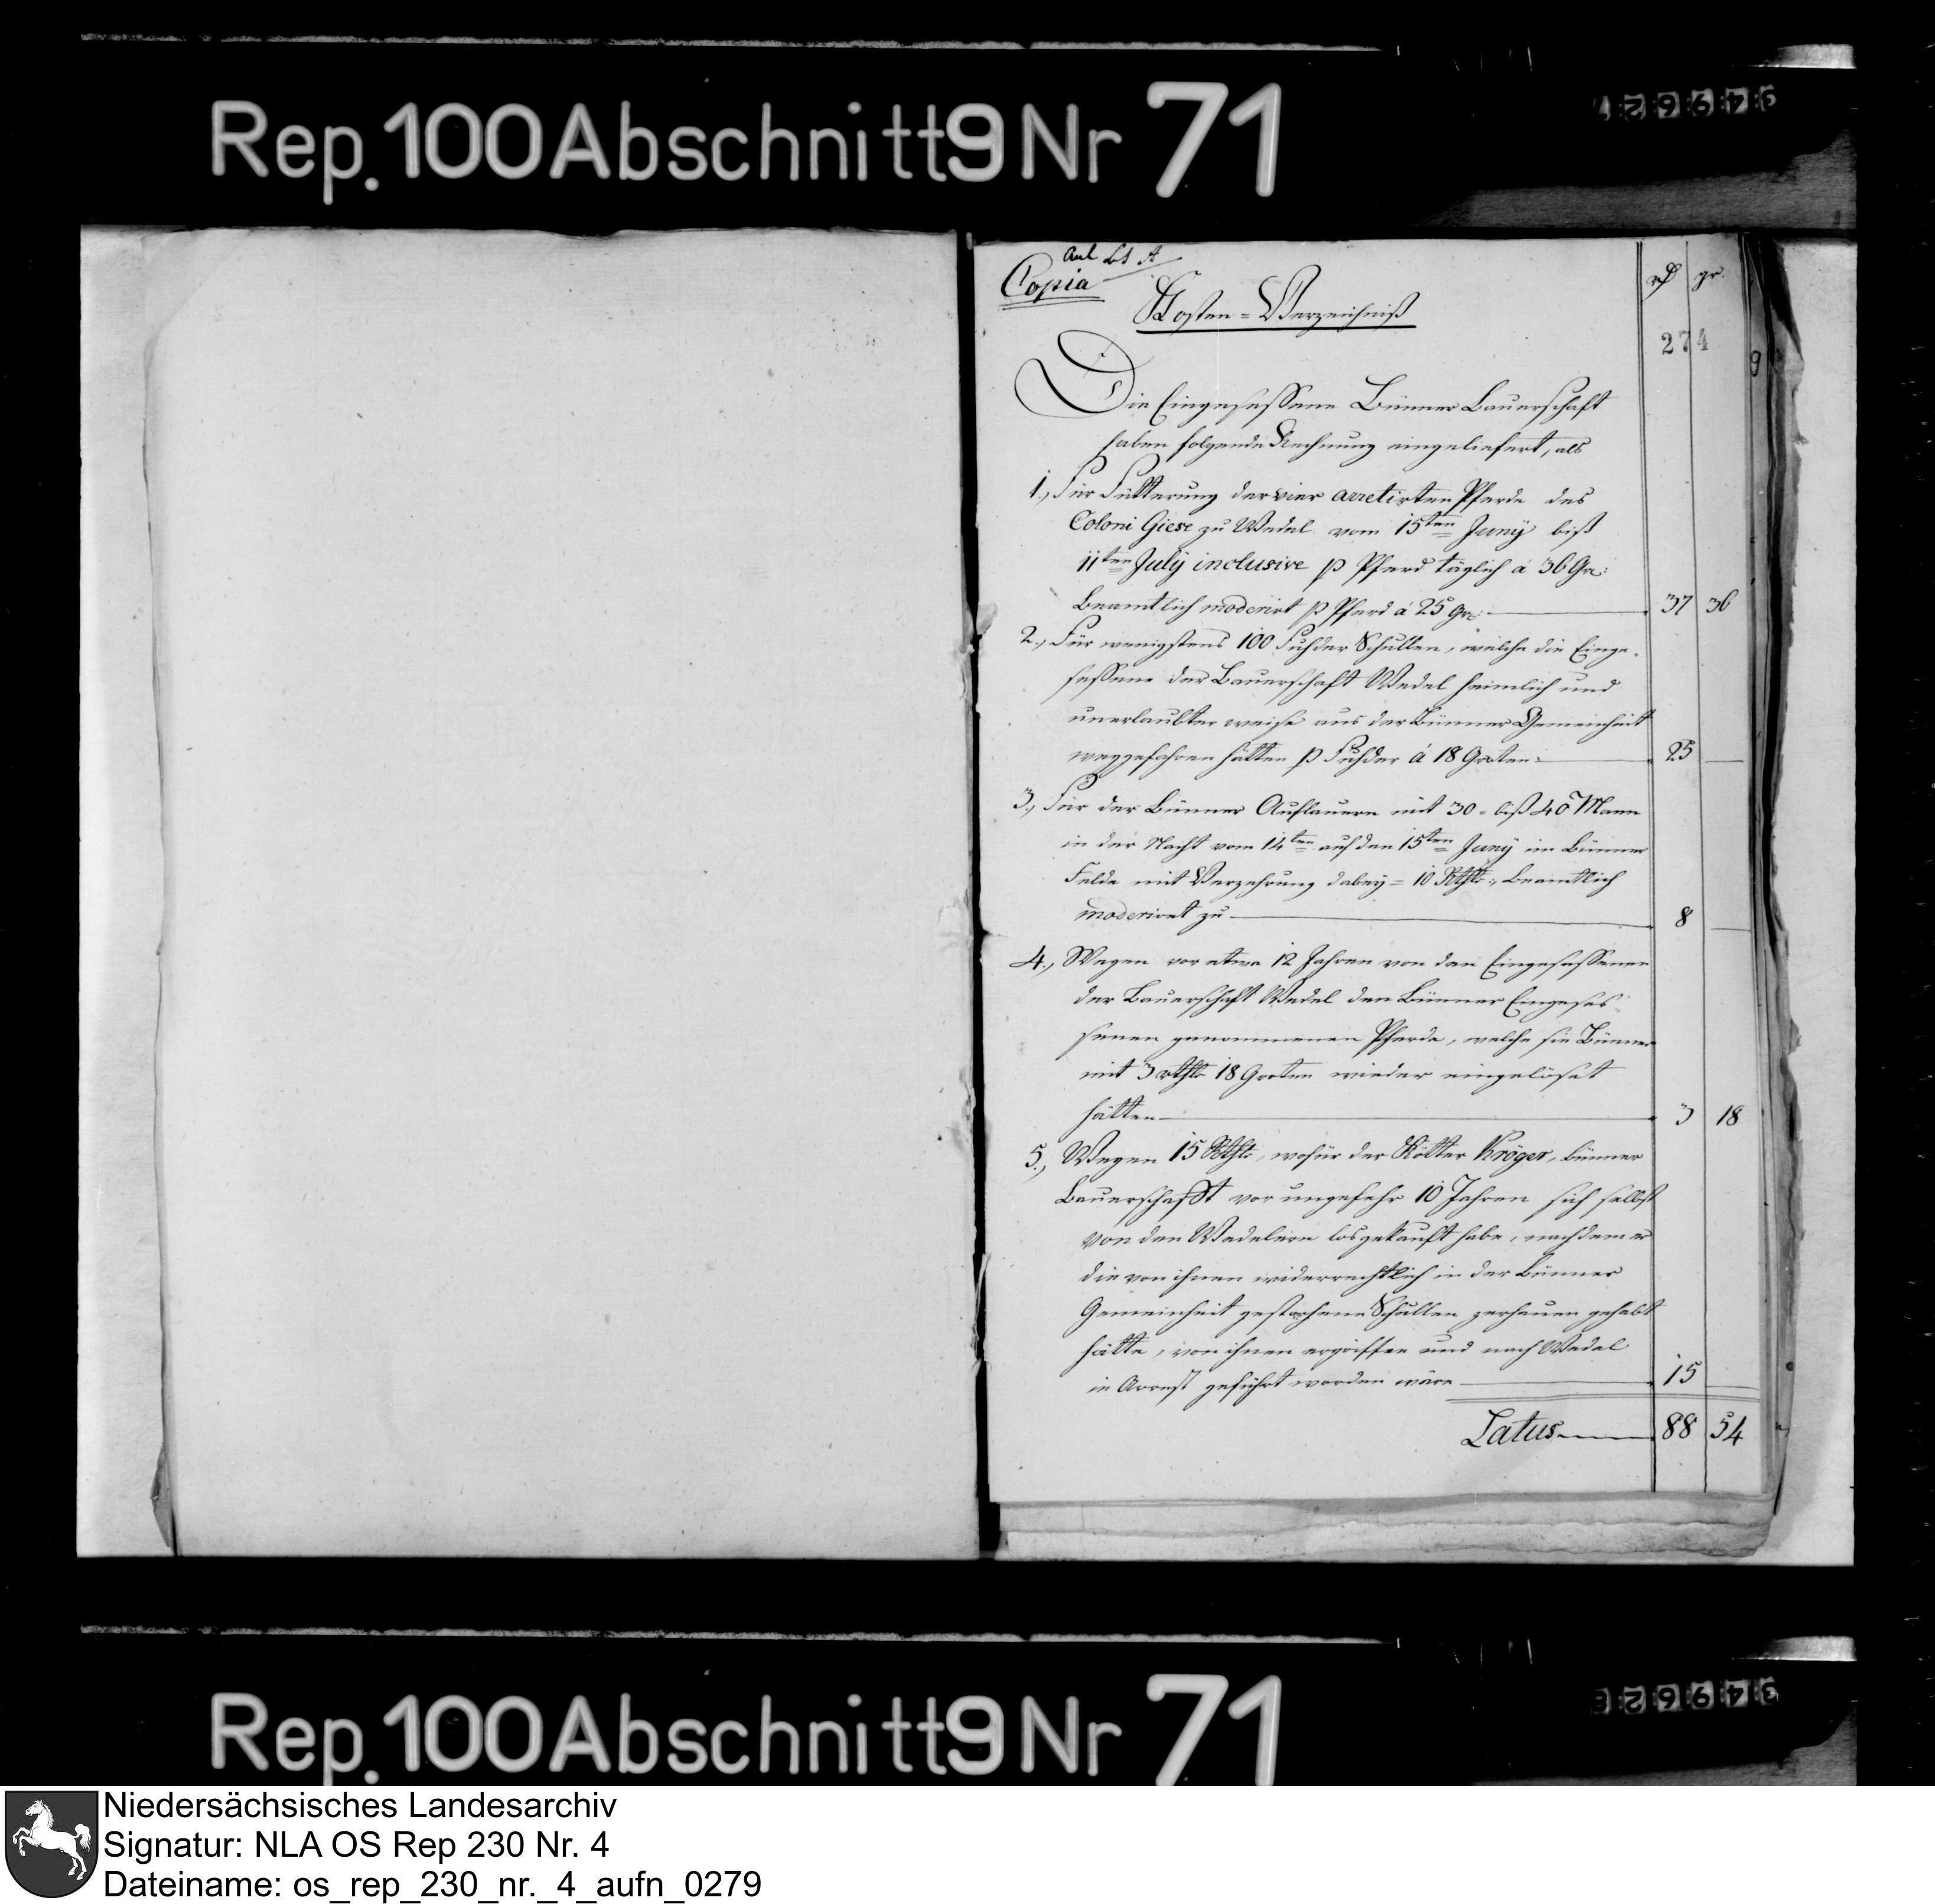 Rep. 100 Abschnitt 9 Nr 71
349627
Anl Lt A
Copia
rth gr.
Kosten-Verzeichniß
274
9
Die Eingesessene Bünner Bauerschaft
haben folgende Rechnung eingeliefert, als
1., Für Fütterung der vier arretirten Pferde des
Coloni Giese zu Wedel vom 15ten Juny biß
11ten July inclusive p Pferd täglich á 36 Gr:
Beamtlich moderirt p Pferd á 25 Gr: 37 36
2., Für wenigstens 100 Fuhder Schullen, welche die Einge-
sessene der Bauerschaft Wedel heimlich und
unerlaubter weise aus der Bünner Gemeinheit
weggefahren hätten p Fuhder á 18 Groten: 25
3., Für der Bünner Auflauern mit 30- biß 40 Mann
in der Nacht vom 14ten auf den 15ten Juny im Bünner
Felde mit Verzehrung dabey = 10 Rthlr:, Beamtlich
moderiret zu 8
4., Wegen vor etwa 12 Jahren von den Eingesessenen
der Bauerschaft Wedel den Bünner Eingeses-
senen genommenen Pferde, welche sie Bünner
mit 3 rthlr 18 Groten wieder eingelöset
hätten 3 18
5., Wegen 15 Rthlr, wofür der Kötter Kröger, Bünner
Bauerschaft vor ungefehr 10 Jahren sich selbst
von den Wedelern losgekauft habe, nachdem er
die von ihnen widerrechtlich in der Bünner
Gemeinheit gestochene Schullen zerhauen gehabt
hätte, von ihnen ergriffen und nach Wedel
in Arrest geführt worden wäre 15
Latus 88 54
Rep. 100 Abschnitt 9 Nr 71
349628
Niedersächsisches Landesarchiv
Signatur: NLA OS Rep 230 Nr. 4
Dateiname: os_rep_230_nr._4_aufn_0279